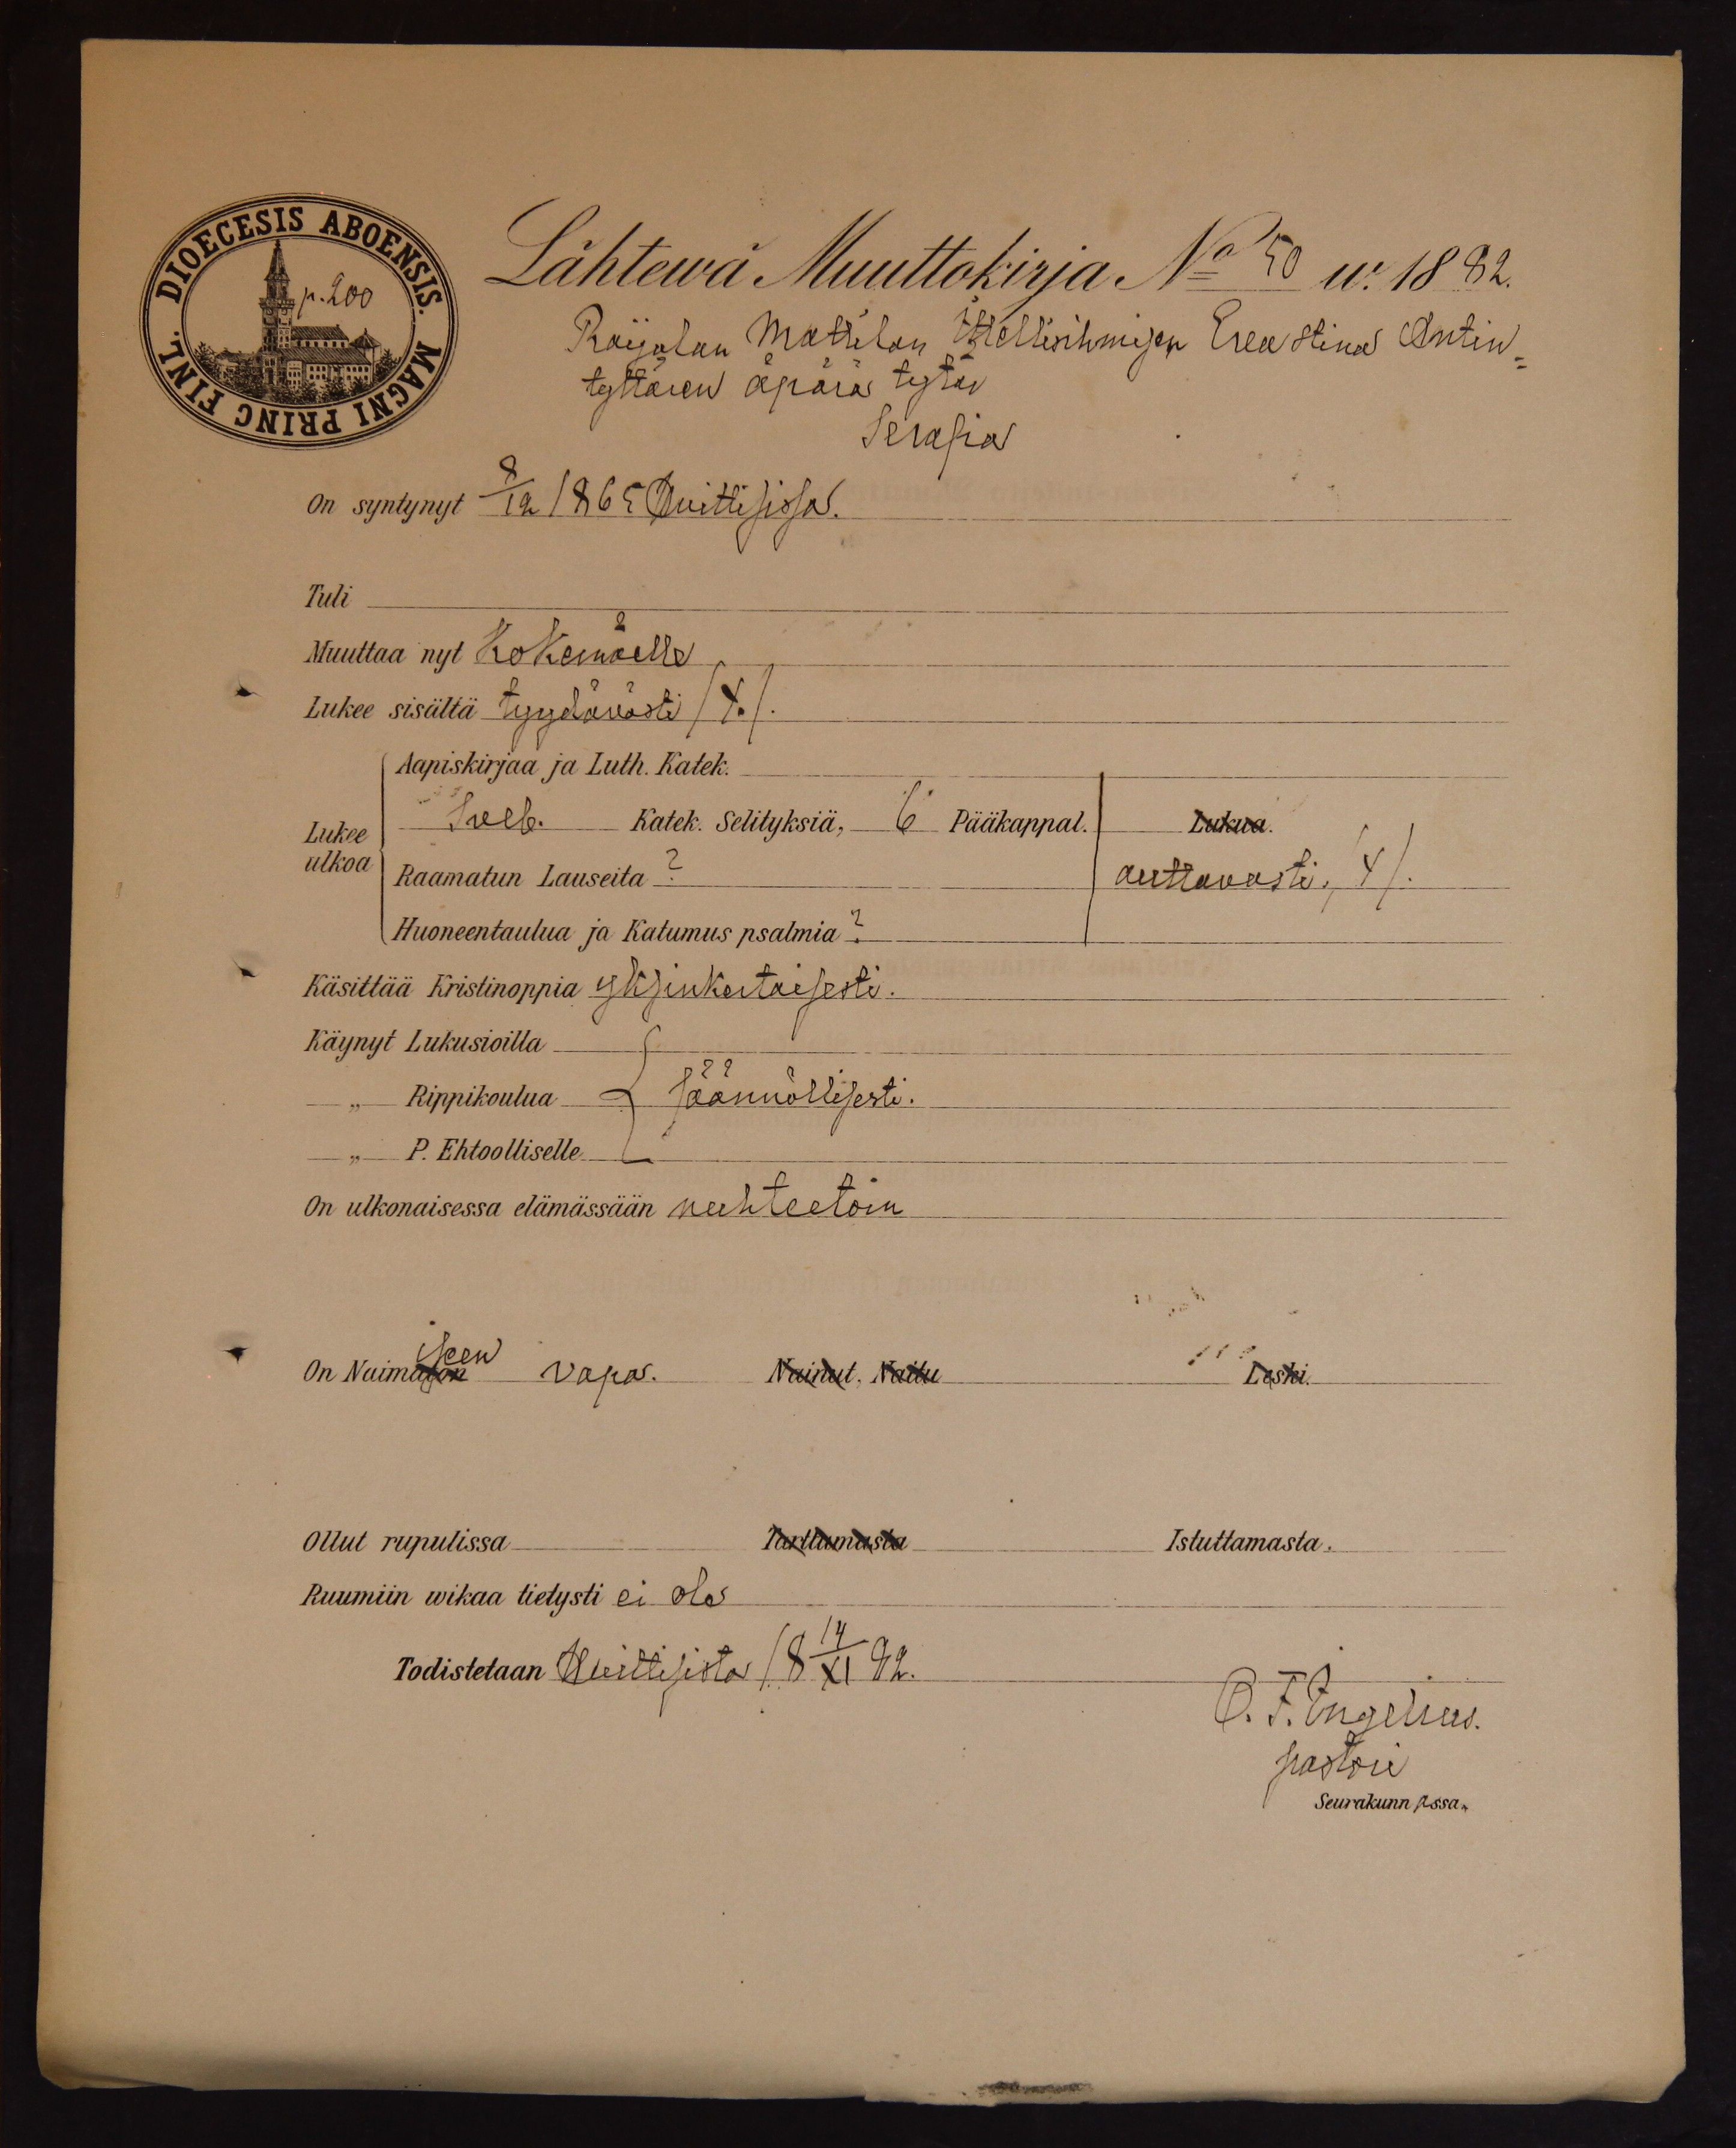 DIOECESIS ABOENSIS. MAGNI PRINC FINL.
p. 200
Lähtewä Muuttokirja No 50 w. 1882.
Raijalan Mattilan Itellisihmisen Eeva Stina Antin-
tyttären äpärä tytär
Serafia
On syntynyt 8/12 1865 Huittisissa.
Tuli
Muuttaa nyt Kokemäelle
Lukee sisältä tyydävästi /4./.
Lukee ulkoa
Aapiskirjaa ja Luth. Katek.
Sveb. Katek. Selityksiä, 6 Pääkappal. Lukua.
Raamatun Lauseita ? auttavasti. /4/.
Huoneentaulua ja Katumus psalmia ?
Käsittää Kristinoppia yksinkertaisesti.
Käynyt Lukusioilla
„ Rippikoulua säännöllisesti.
„ P. Ehtoolliselle
On ulkonaisessa elämässään nuhteetoin
On Naimaton iseen vapa. Nainut. Naitu Leski.
Ollut rupulissa Tarttumasta Istuttamasta.
Ruumiin wikaa tietysti ei ole
Todistetaan Huittisista 18 14/XI 82.
O. F. Engelius.
pastori
Seurakunn ssa.